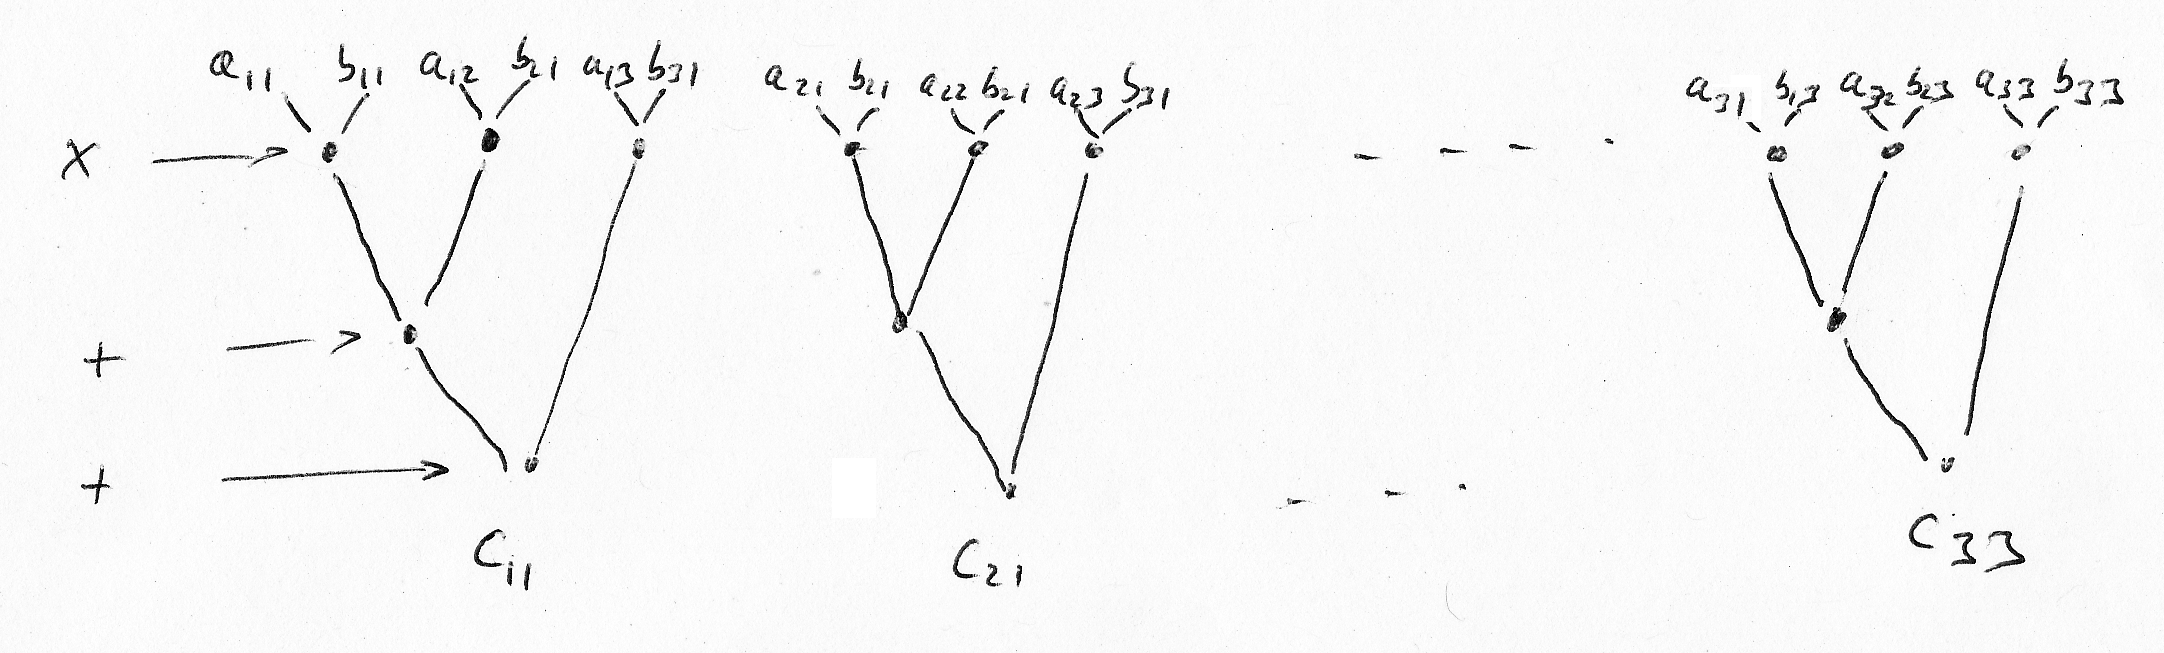 a11 b11 a12 b21 a13 b31 a21 b21 a22 b21 a23 b31 a31 b13 a32 b23 a33 b33
×
+
+
C11 C21 C33